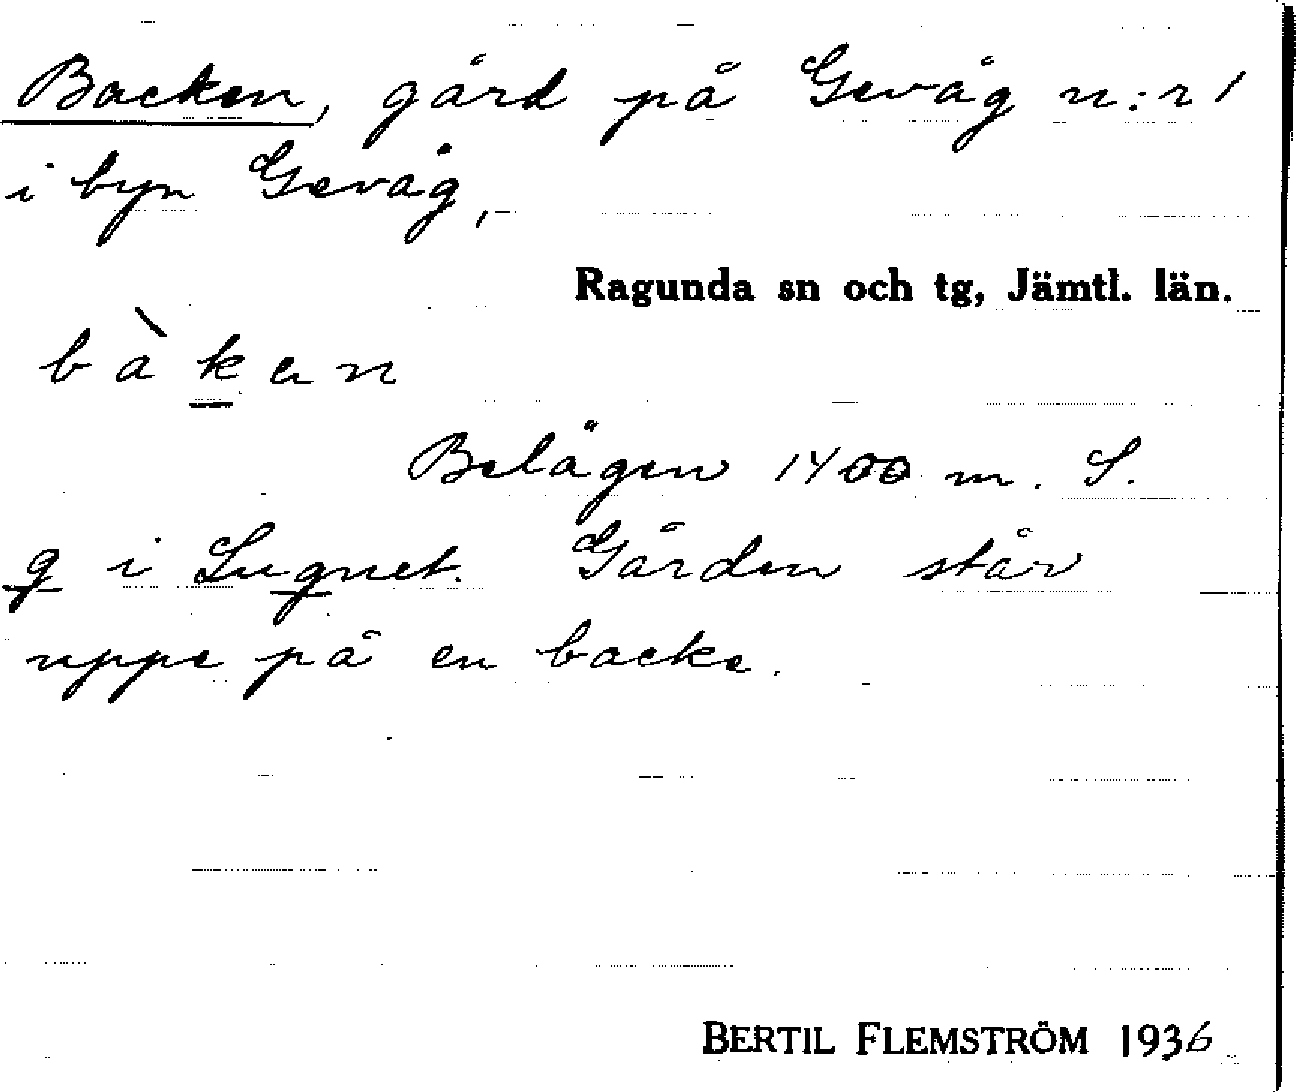 Backen, gård på Gevåg n:r 1
i byn Gevåg,
Ragunda sn och tg, Jämtl. län.
bàkan
Belägen 1400 m. S.
g i Lugnet. Gården står
uppe på en backe.
BERTIL FLEMSTRÖM 1936